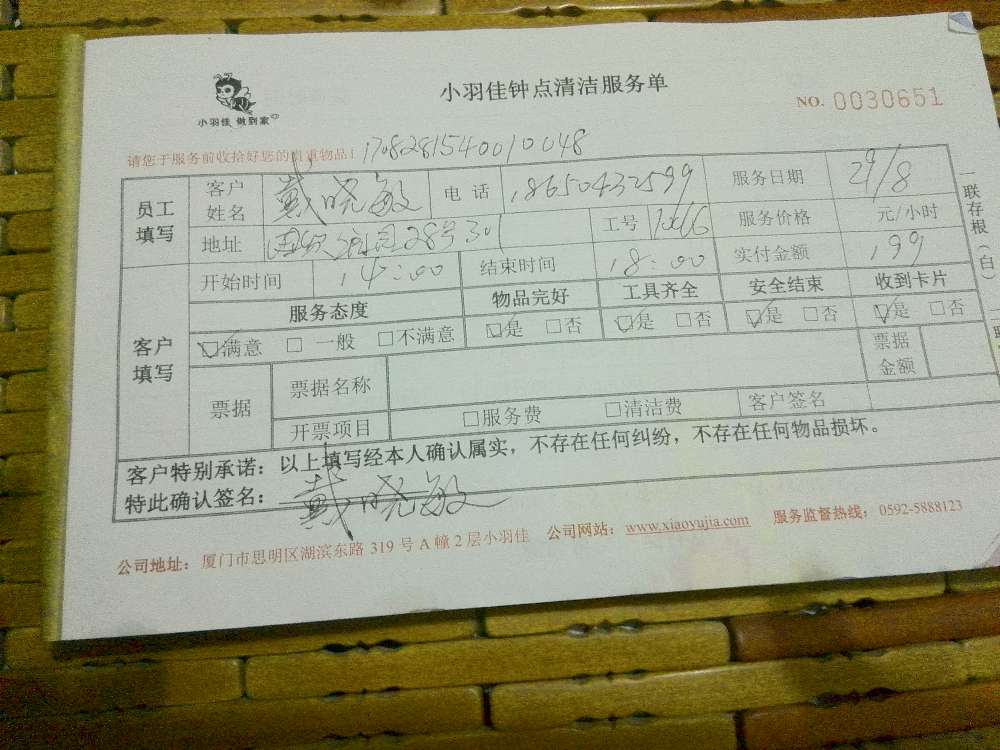 小羽佳 做到家
小羽佳钟点清洁服务单
NO. 0030651
请您于服务前收拾好您的贵重物品! 1708281540010048
员工填写 客户姓名 戴晓敏 电话 18650432599 服务日期 29/8
地址 28号301 工号 服务价格 元/小时
客户填写 开始时间 14:00 结束时间 18:00 实付金额 199
服务态度 物品完好 工具齐全 安全结束 收到卡片
☑满意 □一般 □不满意 ☑是 □否 ☑是 □否 ☑是 □否 ☑是 □否
票据 票据名称 票据金额
开票项目 □服务费 □清洁费 客户签名
客户特别承诺：以上填写经本人确认属实，不存在任何纠纷，不存在任何物品损坏。
特此确认签名：戴晓敏
公司地址：厦门市思明区湖滨东路 319 号 A 幢 2 层小羽佳 公司网站：www.xiaoyujia.com 服务监督热线：0592-5888123
一联存根（白）